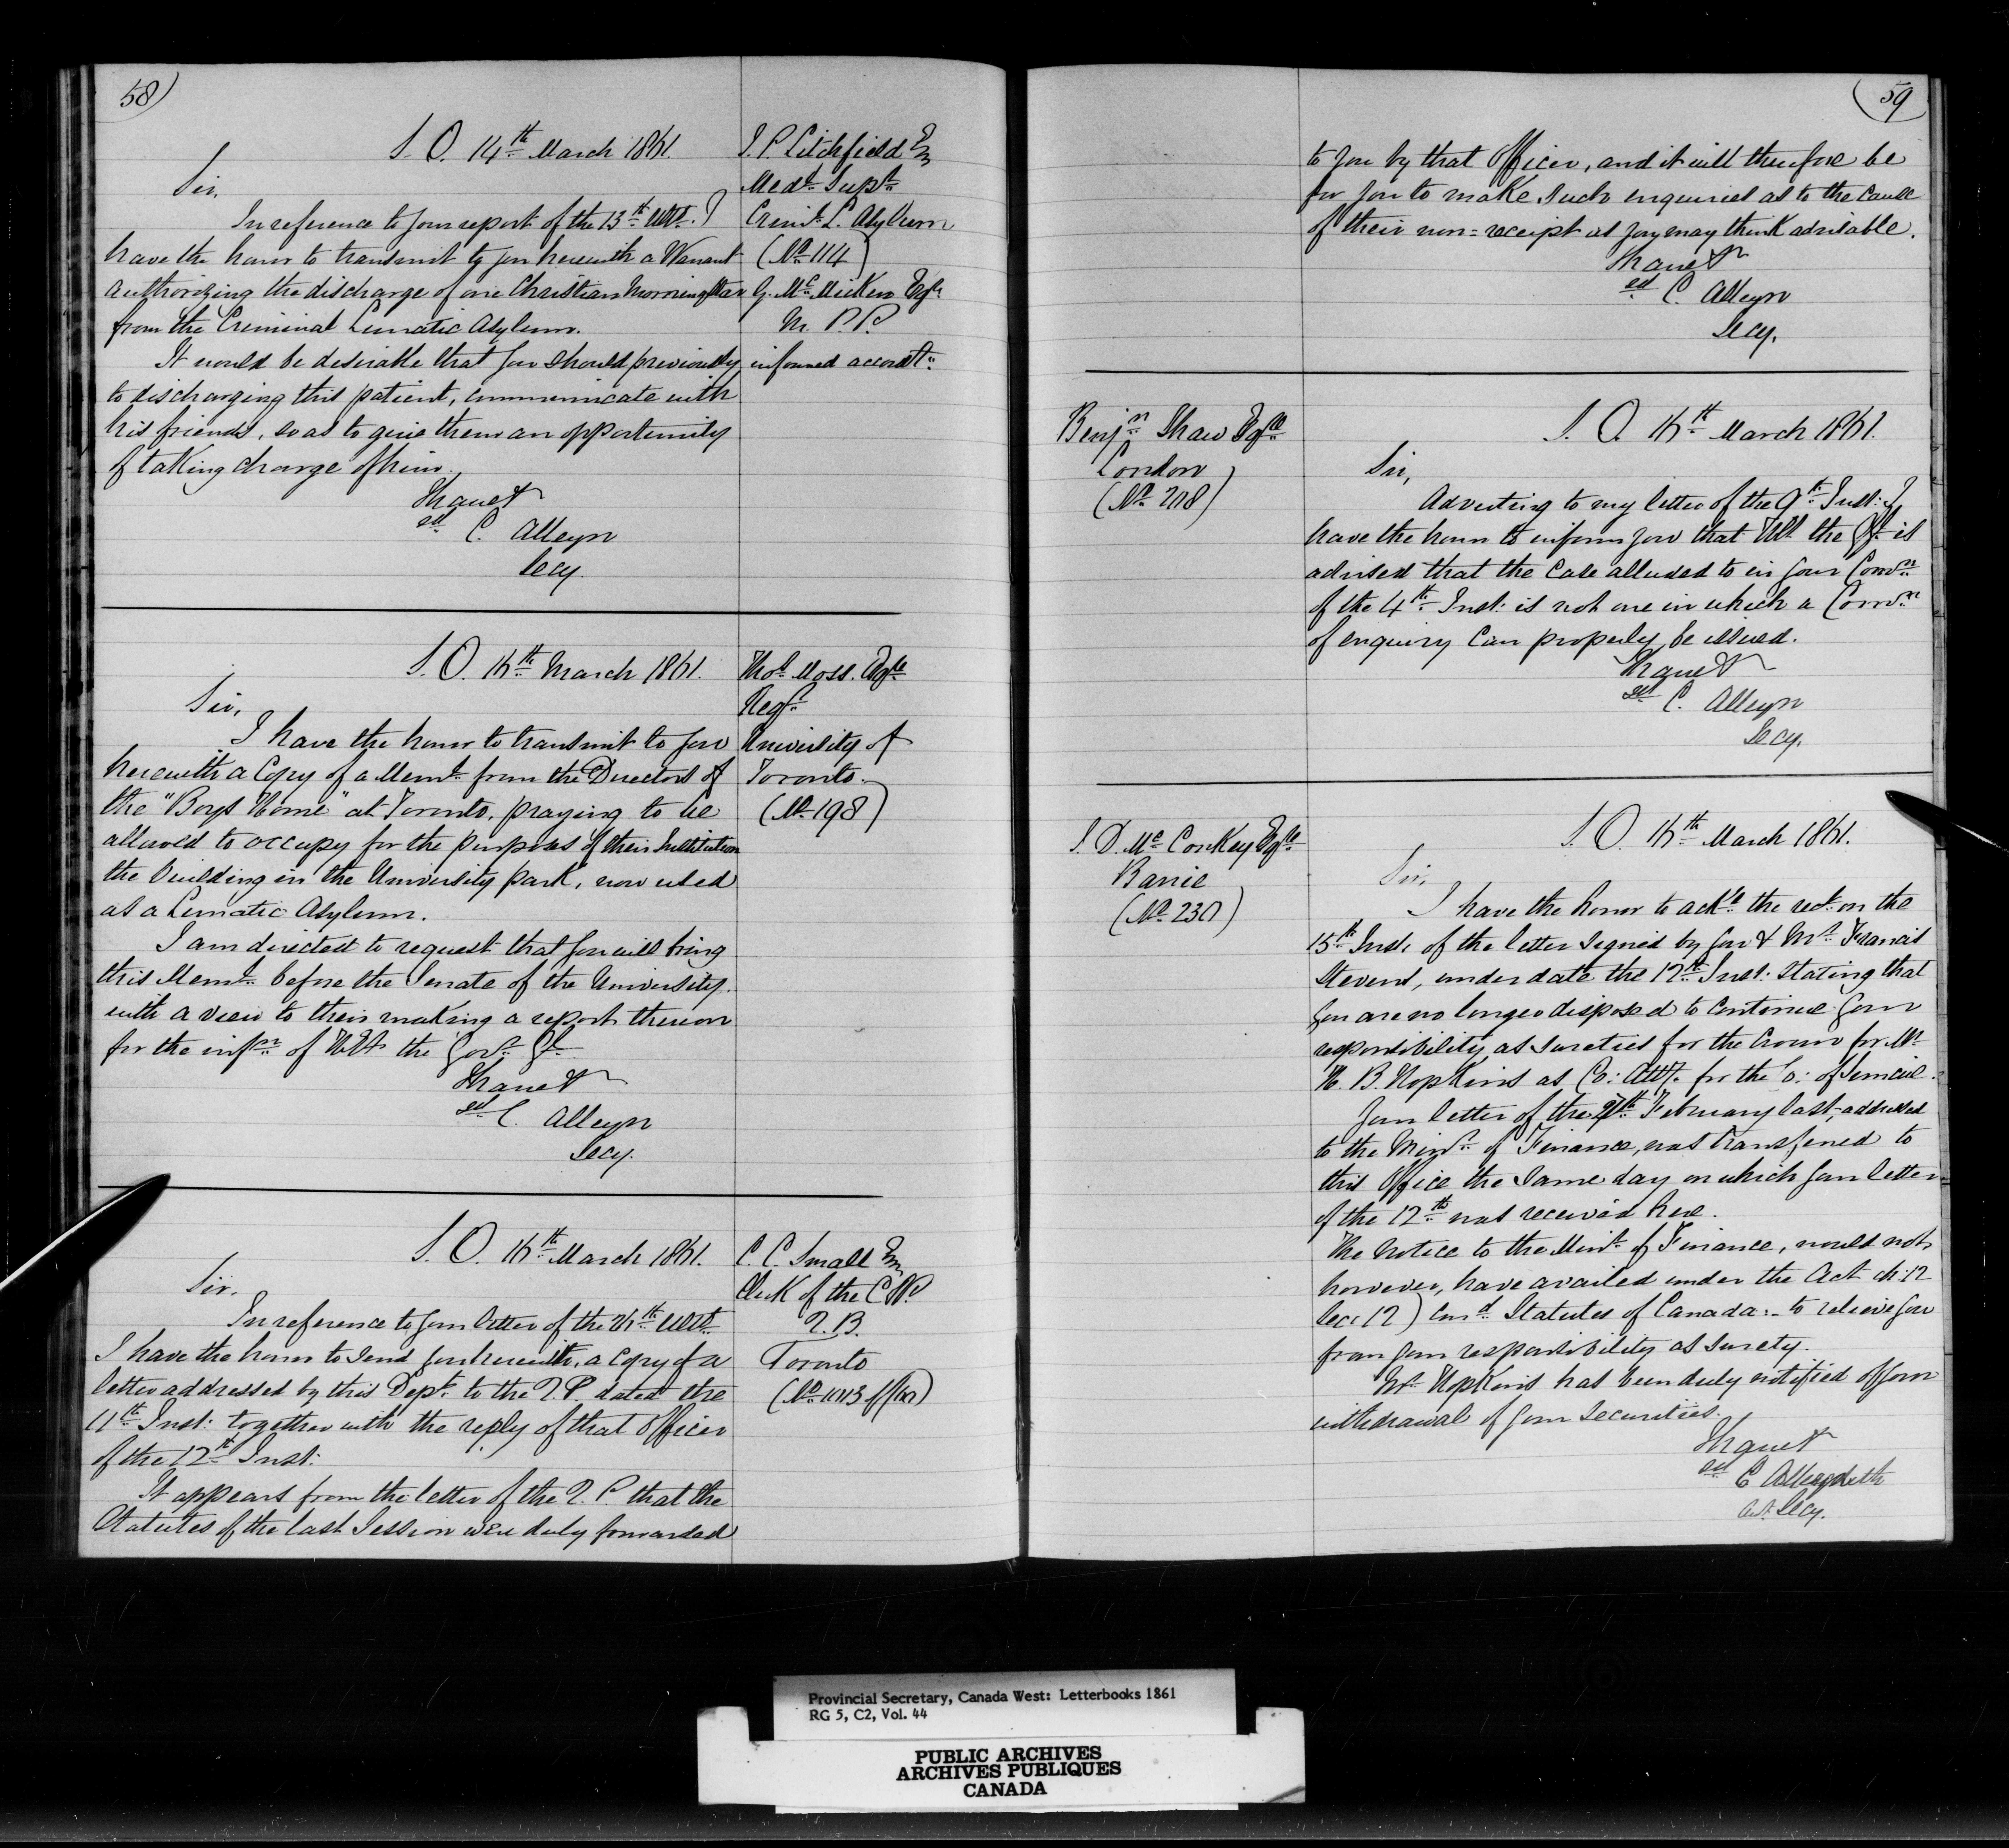 58)
S. O. 14th March 1861.
J. P. Litchfield Esq
Medl Supt
Criml L. Asylum
(No 114)
G. McMicken Esqe
M. P. P.
informed accordt.
Sir,
In reference to your report of the 13th Ult. I
have the honor to transmit to you herewith a Warrant
authorizing the discharge of one Christian Morningstar
from the Criminal Lunatic Asylum.
It would be desirable that you should previously
to discharging this patient, communicate with
his friends, so as to give them an opportunity
of taking charge of him.
I have &
sd C. Alleyn
Secy.
S. O. 16th March 1861.
Thos Moss. Esqe
Regr
University of
Toronto.
(No 198)
Sir,
I have the honor to transmit to you
herewith a Copy of a Meml from the Directors of
the "Boys Home" at Toronto, praying to be
allowed to occupy for the purposes of their Institution
the building in the University park, now used
as a Lunatic Asylum.
I am directed to request that you will bring
this Meml before the Senate of the University.
with a view to their making a report thereon
for the infn of HEx the Govr Gl
I have &
sd C. Alleyn
Secy.
S. O. 16th March 1861.
C. C. Small Esq
Clerk of the C & P.
Q. B.
Toronto
Sir,
In reference to your letter of the 26th Ult.
I have the honor to send you herewith, a Copy of a
letter addressed by this Dept. to the Q. P. dated the
11th Inst: together with the reply of that Officer
of the 12th Inst:
It appears from the letter of the Q. P. that the
Statutes of the last Session were duly forwarded
(59
to you by that Officer, and it will therefore be
for you to make such enquiries as to the cause
of their non=receipt as you may think advisable.
I have &
sd C. Alleyn
Secy.
S. O. 16th March 1861.
Benjn Shaw Esqe
London
(No 208)
Sir,
Adverting to my letter of the 9th Inst: I
have the honor to inform you that HEx the GG is
advised that the Case alluded to in your Comn
of the 4th Inst: is not one in which a Comn
of enquiry can properly be issued.
I have &
sd C. Alleyn
Secy.
S. O. 16th March 1861.
T. D. McConkey Esqe
Barrie
(No 230)
Sir,
I have the honor to ackn the rect on the
15th Inst: of the letter signed by you & Mr Francis
Stevens, under date the 12th Inst: stating that
you are no longer disposed to continue your
responsibility as sureties for the Crown for Mr
H. B. Hopkins as Co: Atty. for the Co: of Simcoe.
Your letter of the 27th February last, addressed
to the Minr of Finance, was transferred to
this Office the same day on which your letter
of the 12th was received here.
The notice to the Minr of Finance, would not
however, have availed under the Act ch: 12
Sec: 12) Cond Statutes of Canada:- to relieve you
from your responsibility as surety.
Mr Hopkins has been duly notified of your
withdrawal of your securities.
I have &
sd
Secy.
Provincial Secretary, Canada West: Letterbooks 1861
RG 5, C2, Vol. 44
PUBLIC ARCHIVES
ARCHIVES PUBLIQUES
CANADA